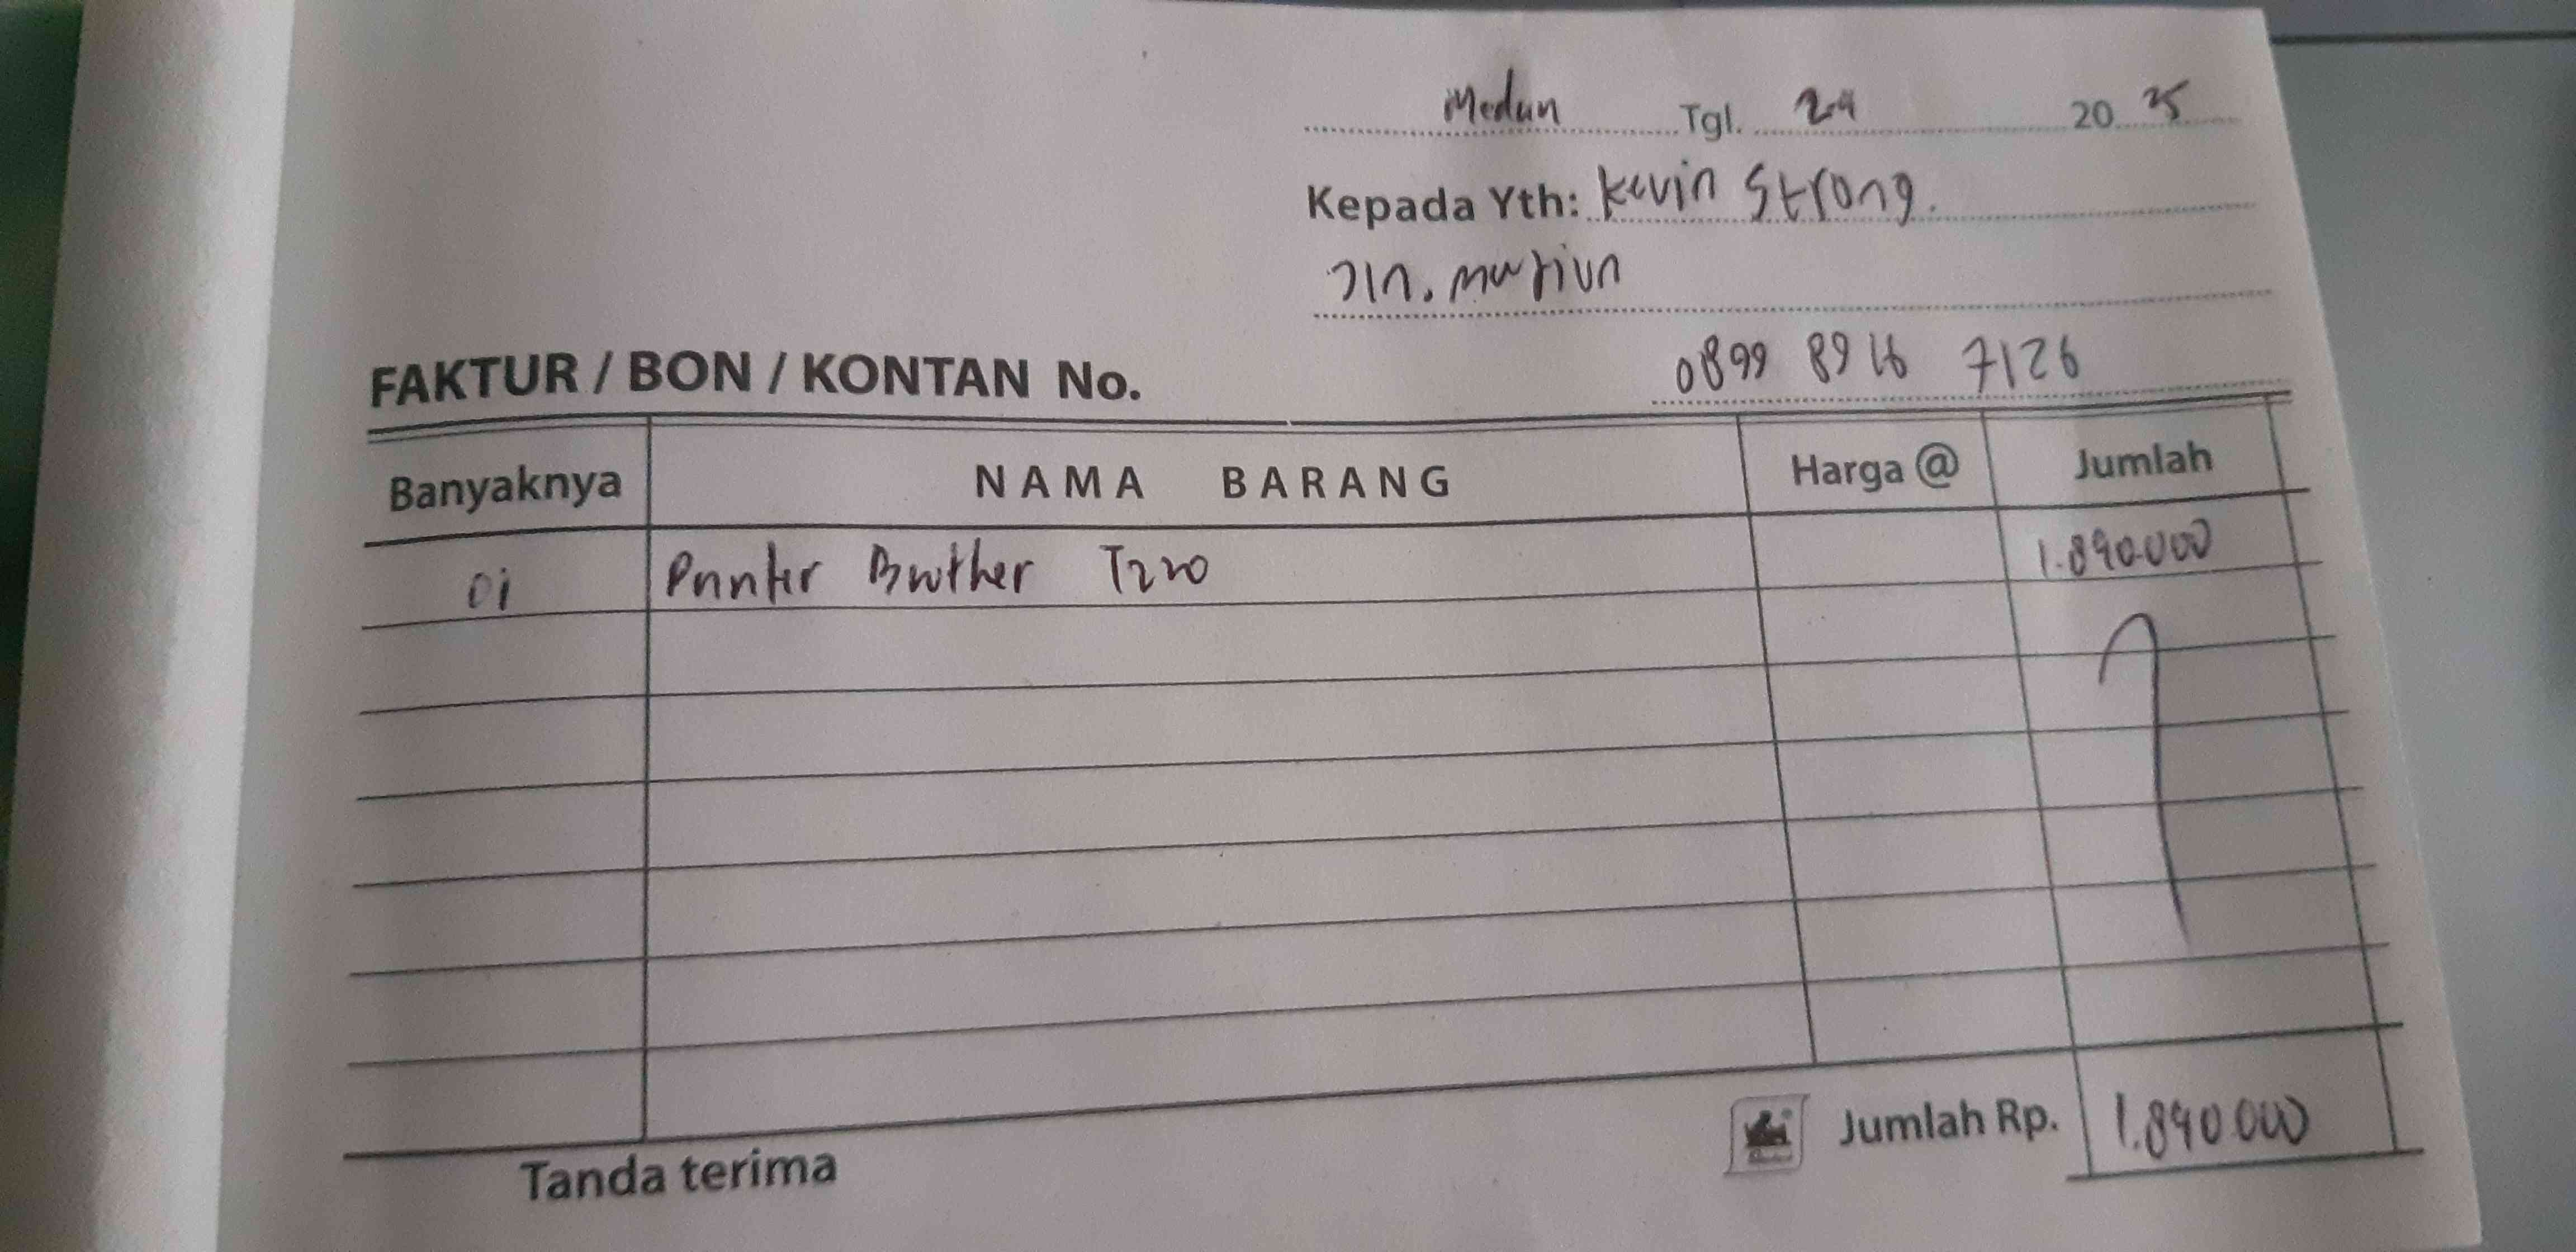 Medan Tgl. 24 20 25
Kepada Yth: Kevin Strong.
Jln. Marjun
0899 8916 7126
FAKTUR / BON / KONTAN No.
Banyaknya NAMA BARANG Harga @ Jumlah
01 Printer Brother T220 1.890.000
Jumlah Rp. 1.890.000
Tanda terima